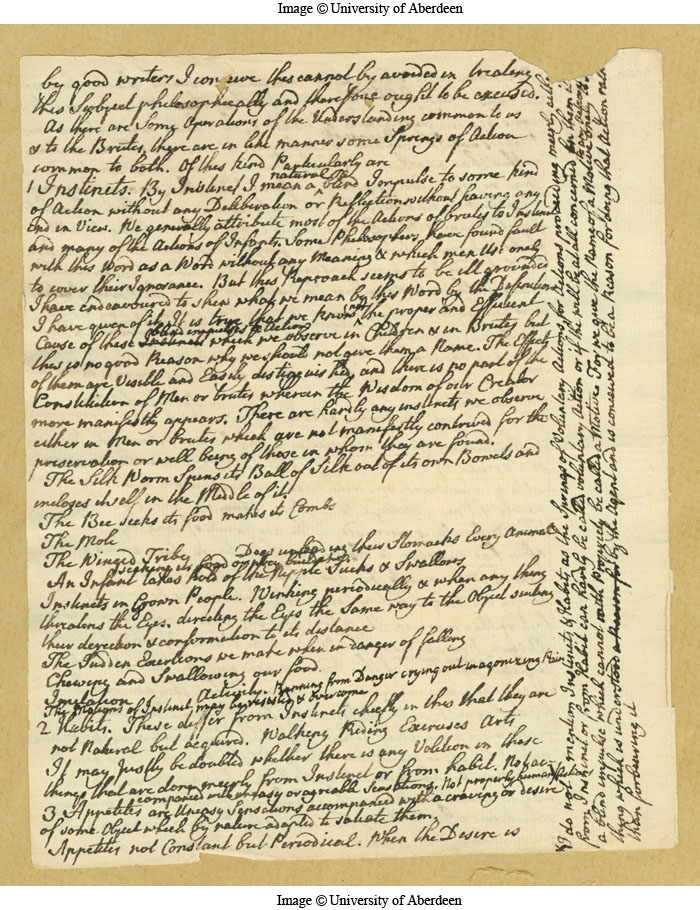 Image © University of Aberdeen
by good writers I conceive this cannot by avoided in treating
this Subject philosophically and therefore ought to be excused.
As there are Some Operations of the Understanding common to us
& to the Brutes, there are in like manner some Springs of Action
common to both. Of this kind Particularly are
1 Instincts. By Instinct I mean a natural blind Impulse to some kind
of Action without any Deliberation or Reflection without having any
End in View. We generally attribute most of the Actions of brutes to Instinct
and many of the Actions of Infants. Some Philosophers have found fault
with this Word as a Word without any Meaning & which men Use only
to cover their Ignorance. But this Reproach seems to be ill grounded
I have endeavoured to shew what we mean by this Word by the Definition
I have given of it. It is true that we know not the proper and Efficient
Cause of these Instincts blind impulses to Action which we observe in Children & in Brutes but
this is no good Reason why we should not give them a Name. The Effects
of them are Visible and Easily distinguished, and there is no part of the
Constitution of Men or brutes wherein the Wisdom of our Creator
more manifestly appears. There are hardly any instincts we observe
either in Men or brutes which are not manifestly contrived for the
preservation or well being of those in whom they are found.
The Silk Worm Spins its Ball of Silk out of its own Bowels and
incloses itself in the Middle of it.
The Bee seeks its food makes its Combs
The Mole
The Winged Tribe Dogs unloading their Stomachs Every Animal
seeking its food
An Infant takes hold of the Nipple Sucks & Swallows
Instincts in Grown People. Winking periodically & when any thing
threatens the Eyes. directing the Eyes the Same way to the Object suiting
their direction & conformation to its distance
The Sudden Exertions we make when in danger of falling
Chewing and Swallowing our food.
Imitation Activity. Running from Danger crying out in agonizing Pain
The Motions of Instinct may be resisted & overcome
2 Habits. These differ from Instincts chiefly in this that they are
not Natural but acquired. Walking Riding Exercises Arts
It may justly be doubted whether there is any Volition in those
things that are done meerly from Instinct or from habit. Not ac-
companied with uneasy or agreable Sensations. Not properly human Actions
3 Appetites are Uneasy Sensations accompanied with a craving or desire
of some Object which by nature adapted to satiate them.
Appetites not Constant but Periodical. When the Desire is
I do not mention Instincts & Habits as the Springs of Voluntary Actions, for Actions proceeding meerly either
from Instinct or from Habit can hardly be called voluntary Action or if the will be at all concerned in them it is
a blind impulse which cannot with Propriety be called a Motive. For we give the Name of a Motive only to
thing which is understood a reason for by the Agent and is conceived to be a Reason for doing that Action rather
than forbearing it
Image © University of Aberdeen